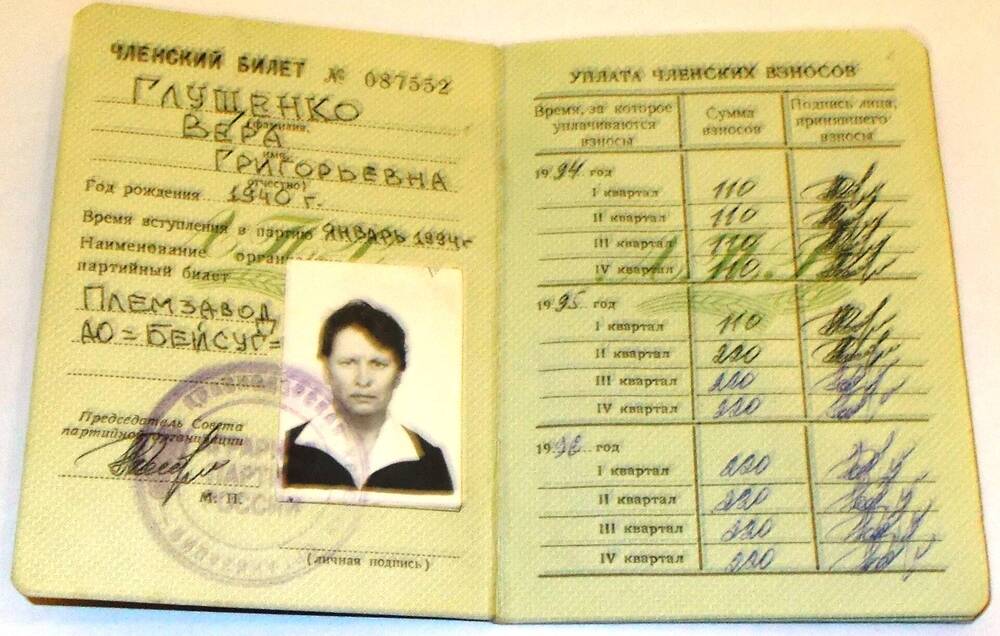 ЧЛЕНСКИЙ БИЛЕТ № 087552
ГЛУЩЕНКО
(фамилия,
ВЕРА
имя,
ГРИГОРЬЕВНА
отчество)
Год рождения 1940 г.
Время вступления в партию ЯНВАРЬ 1994г
Наименование
партийный билет
ПЛЕМЗАВОД
АО=БЕЙСУГ=
Председатель Совета
партийной организации
М. П.
(личная подпись)
УПЛАТА ЧЛЕНСКИХ ВЗНОСОВ
Время, за которое уплачиваются взносы
Сумма взносов
Подпись лица, принявшего взносы
1994 год
I квартал 110
II квартал 110
III квартал 110
IV квартал 110
1995 год
I квартал 110
II квартал 220
III квартал 220
IV квартал 220
1996 год
I квартал 220
II квартал 220
III квартал 220
IV квартал 220